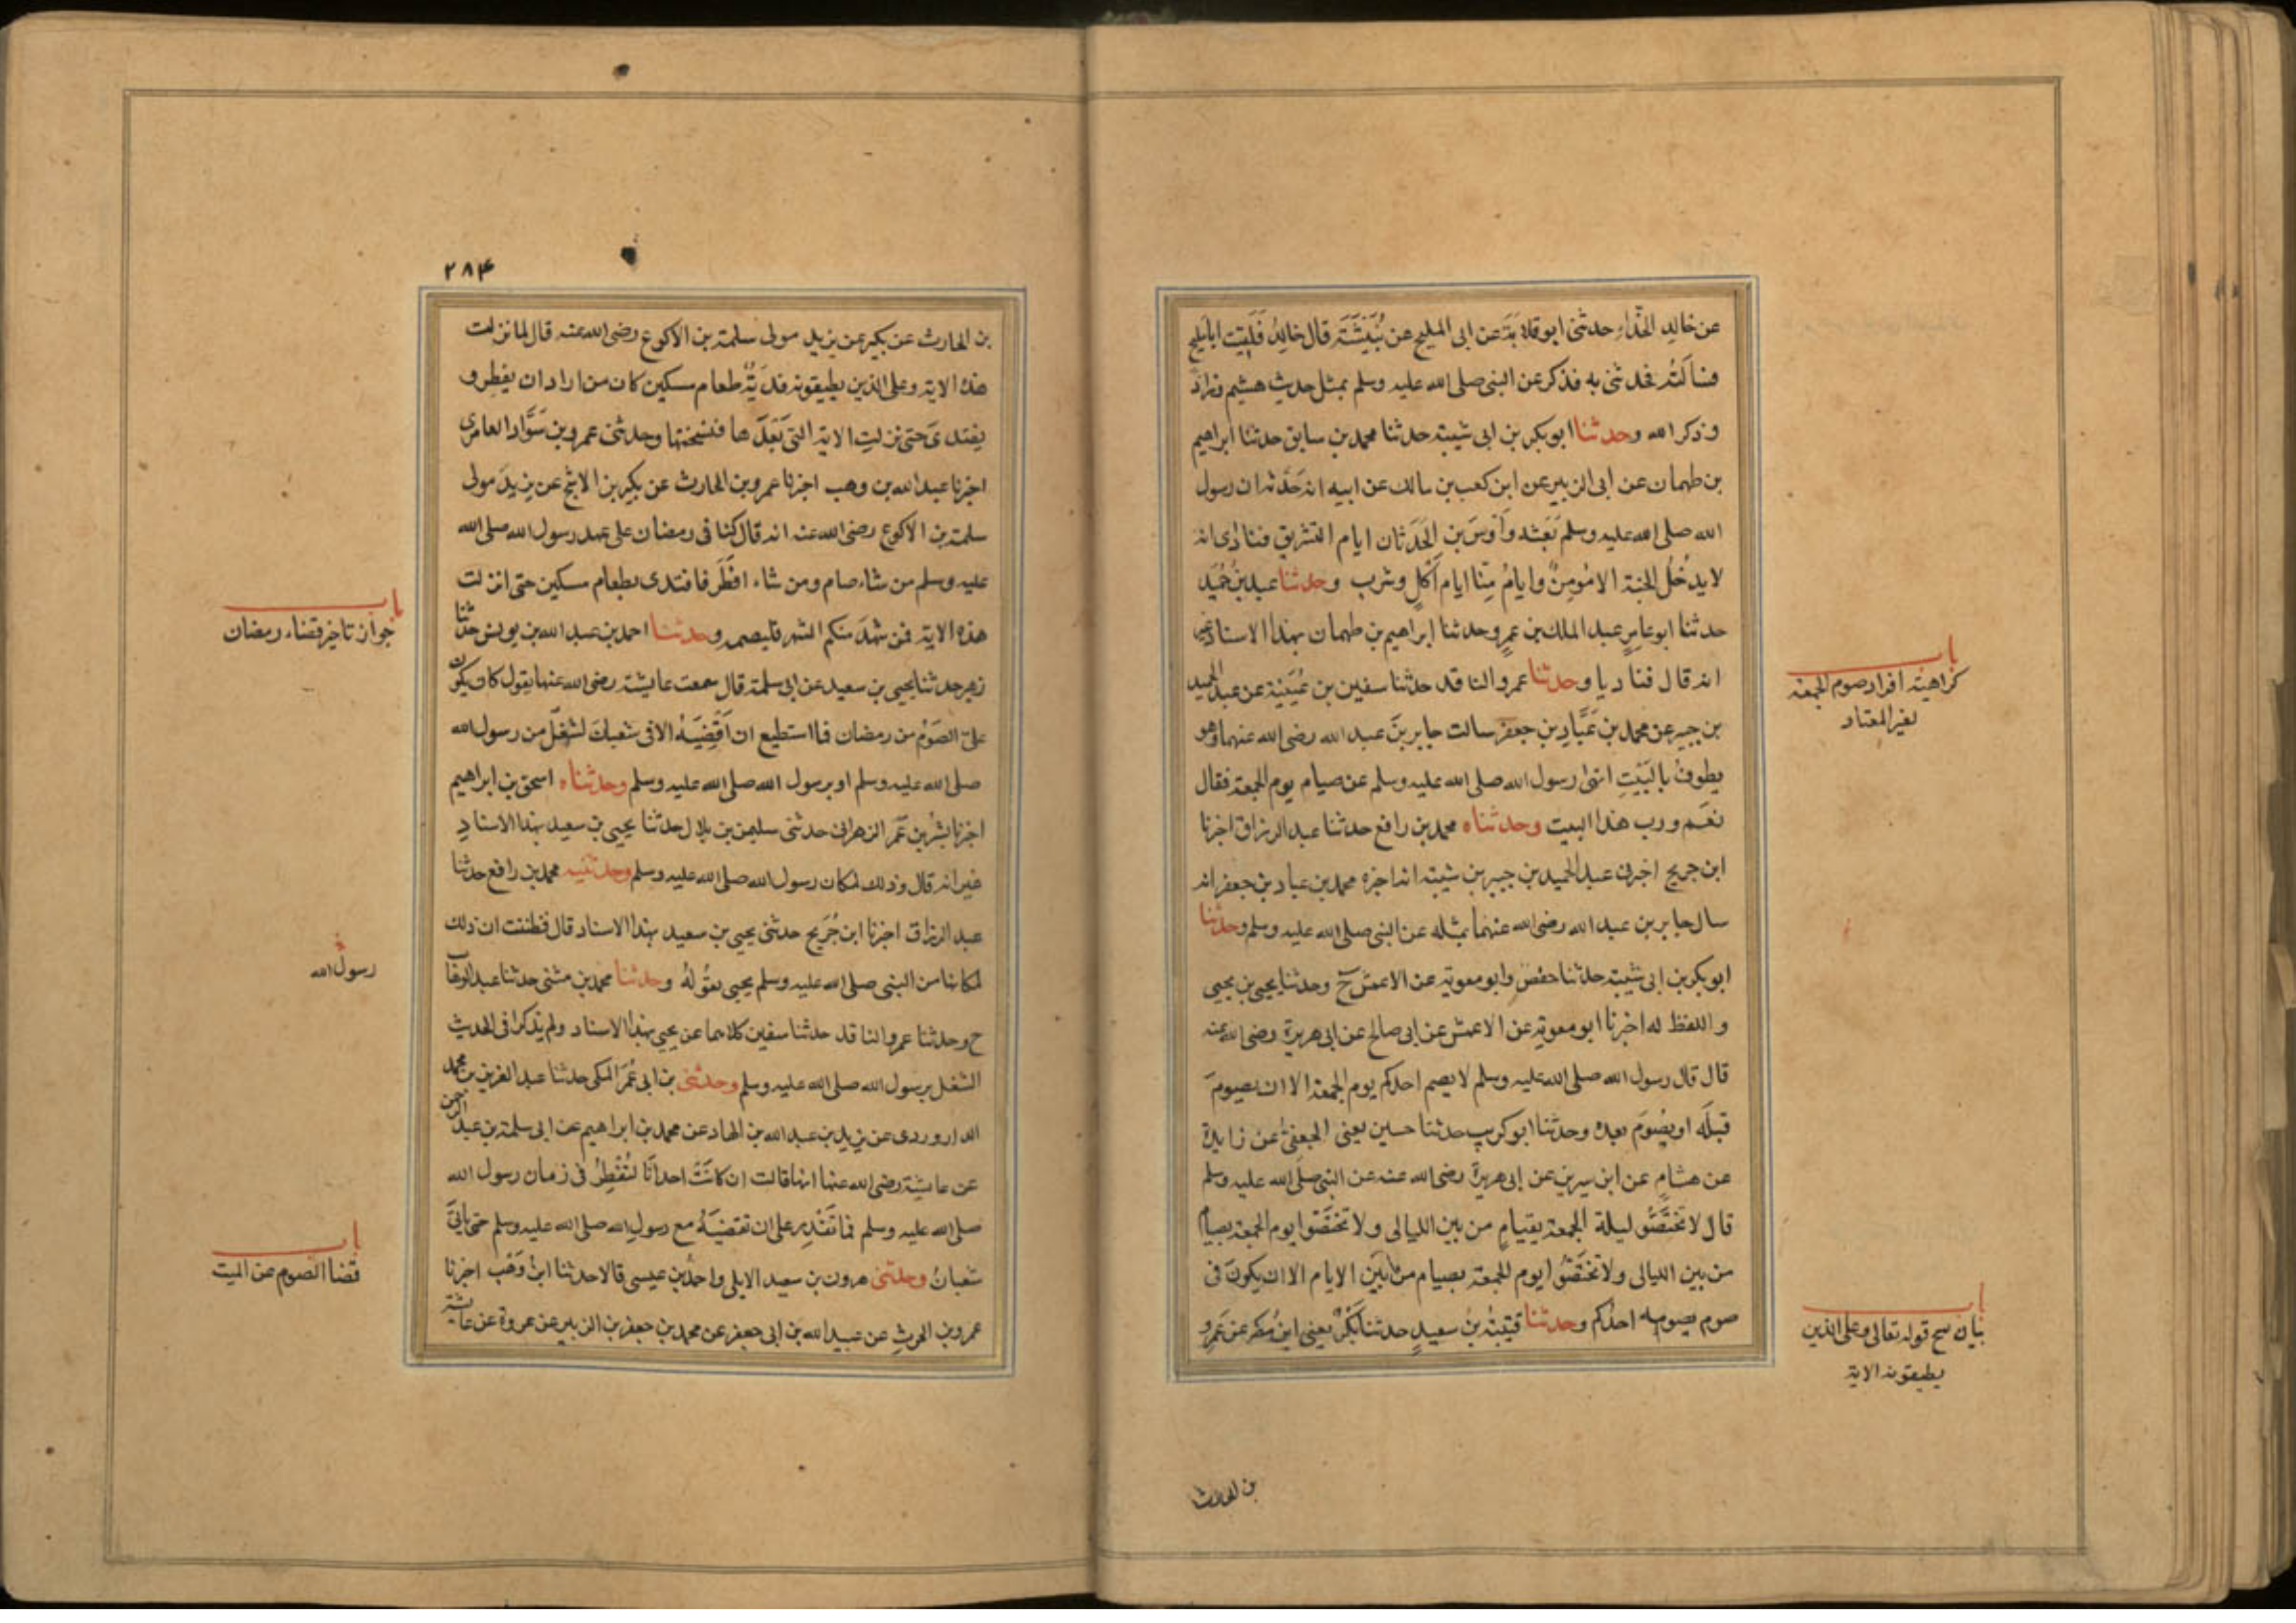 عن خالد الحذاء حدثنى ابو قلابة عن ابى المليح عن نُبَيْشَةَ قال خالدٌ فَلَقِيت ابا مليح
فسألته فحدثنى به فذكر عن النبى صلى الله عليه وسلم بمثل حديث هشيم وزاد
وذكر الله وحدثنا ابو بكر بن ابى شيبة حدثنا محمد بن سابق حدثنا ابراهيم
بن طهمان عن ابى الزبير عن ابن كعب بن مالك عن ابيه انه حَدَّثه ان رسول
الله صلى الله عليه وسلم بَعَثه وَاَوسَ بن الحَدَثان ايام التشريق فنادى انه
لا يدخُلُ الجنة الا مُومِنٌ وايامُ مِنًا ايام اَكلٍ وشرب وحدثنا عبد بن حُمَيد
حدثنا ابو عامرٍ عبد الملك بن عمرٍو حدثنا ابراهيم بن طهمان بهذا الاسناد غير
انه قال فناديا وحدثنا عمرو الناقد حدثنا سفين بن عُيَيْنة عن عبد الحميد
بن جبير عن محمد بن عَبَّادِ بن جعفر سالت جابر بنَ عبد الله رضى الله عنهما وهو
يطوفُ بالبَيْتِ انهى رسول الله صلى الله عليه وسلم عن صيام يوم الجمعة فقال
نعَم ورب هذا البيت وحدثناه محمد بن رافع حدثنا عبد الرزاق اخبرنا
ابن جريج اخبرنى عبد الحميد بن جبير بن شيبة انه اخبره محمد بن عباد بن جعفر انه
سال جابر بن عبد الله رضى الله عنهما بمثله عن النبى صلى الله عليه وسلم وحدثنا
ابو بكر بن ابى شيبة حدثنا حفصٌ وابو معوية عن الاعمش ح وحدثنا يحيى بن يحيى
واللفظ له اخبرنا ابو معوية عن الاعمش عن ابى صالح عن ابى هريرة رضى الله عنه
قال قال رسول الله صلى الله عليه وسلم لا يصم احدكم يوم الجمعة الا ان يصومَ
قبلَه او يصُومَ بعده وحدثنا ابو كريب حدثنا حسين يعنى الجعفىَّ عن زايدة
عن هشامٍ عن ابن سيرين عن ابى هريرة رضى الله عنه عن النبى صلى الله عليه وسلم
قال لا تختَصُّو ليلة الجمعة بقيامٍ من بين الليالى ولا تختَصّوا يوم الجمعة بصيام
من بين الليالى ولا تختَصُّوا يوم الجمعة بصيام من بَيَنِ الايام الا ان يكونَ فى
صوم يصومه احدُكم وحدثنا قتيبةُ بنُ سعيدٍ حدثنا بَكْرٌ يعنى ابنَ مُضر عن عَمرِو
باب
كراهية افراد صوم الجمعة
لغير المعتاد
باب
بيان نسخ قوله تعالى وعلى الذين
يطيقونه الاية
بن الحارث
٢٨٤
بن الحارث عن بكير عن يزيد مولى سلمة بن الاكوع رضى الله عنه قال لما نزلت
هذه الاية وعلى الذين يطيقونه فدَيَةُ طعام مسكين كان من اراد ان يفطِر و
يفتدىَ حتى نزلتِ الاية التى بَعَدَها فنسختها وحدثنى عمرو بن سَوَّاد العامرى
اخبرنا عبد الله بن وهب اخبرنا عمرو بن الحارث عن بكير بن الاشج عن يزيدَ مولى
سلمة بن الاكوع رضى الله عنه انه قال كنا فى رمضان على عهد رسول الله صلى الله
عليه وسلم من شاء صام ومن شاء افطَر فافتدى بطعام مسكين حتى انزلت
هذه الاية فمن شهدَ منكم الشهر فليصمه وحدثنا احمد بن عبد الله بن يونس حدثنا
زهير حدثنا يحيى بن سعيد عن ابى سلمة قال سمعت عايشة رضى الله عنها يقول كان يكون
علىّ الصَوْمُ من رمضان فما استطيع ان اَقضِيَهُ الا فى شعبانَ لشغلٌ من رسول الله
صلى الله عليه وسلم او برسول الله صلى الله عليه وسلم وحدثناه اسحق بن ابراهيم
اخبرنا بشْرُ بن عمَر الزهرانى حدثنى سليمن بن بلال حدثنا يحيى بن سعيد بهذا الاسنادِ
غير انه قال وذلك لمكان رسول الله صلى الله عليه وسلم وحدثنيه محمد بن رافع حدثنا
عبد الرزاق اخبرنا ابن جُرَيج حدثنى يحيى بن سعيد بهذا الاسناد قال فظننت ان ذلك
لمكانها من النبى صلى الله عليه وسلم يحيى يقُولهُ وحدثنا محمد بن مثنى حدثنا عبد الوهاب
ح وحدثنا عمرو الناقد حدثنا سفين كلاهما عن يحيى بهذا الاسناد ولم يذكرا فى الحديث
الشغل برسول الله صلى الله عليه وسلم وحدثنى بن ابى عُمَر المكى حدثنا عبد العزيز بن محمد
الدراوردى عن يزيد بن عبد الله بن الهاد عن محمد بن ابراهيم عن ابى سلمة بن عبد الرحمن
عن عايشة رضى الله عنها انها قالت ان كانَتْ احدانا لتُفْطِرُ فى زمان رسول الله
صلى الله عليه وسلم فما تَقْدِر على ان تقضيَهُ مع رسولِ الله صلى الله عليه وسلم حتى ياتىَ
شعبانُ وحدثنى هرون بن سعيد الايلى واحمدُ بن عيسى قالا حدثنا ابنُ وَهْب اخبرنا
عمرو بن الحرثِ عن عبيد الله بن ابى جعفر عن محمد بن جعفر بن الزبير عن عروة عن عايشة
باب
جواز تاخير قضاء رمضان
رسول الله
باب
قضا الصوم عن الميت